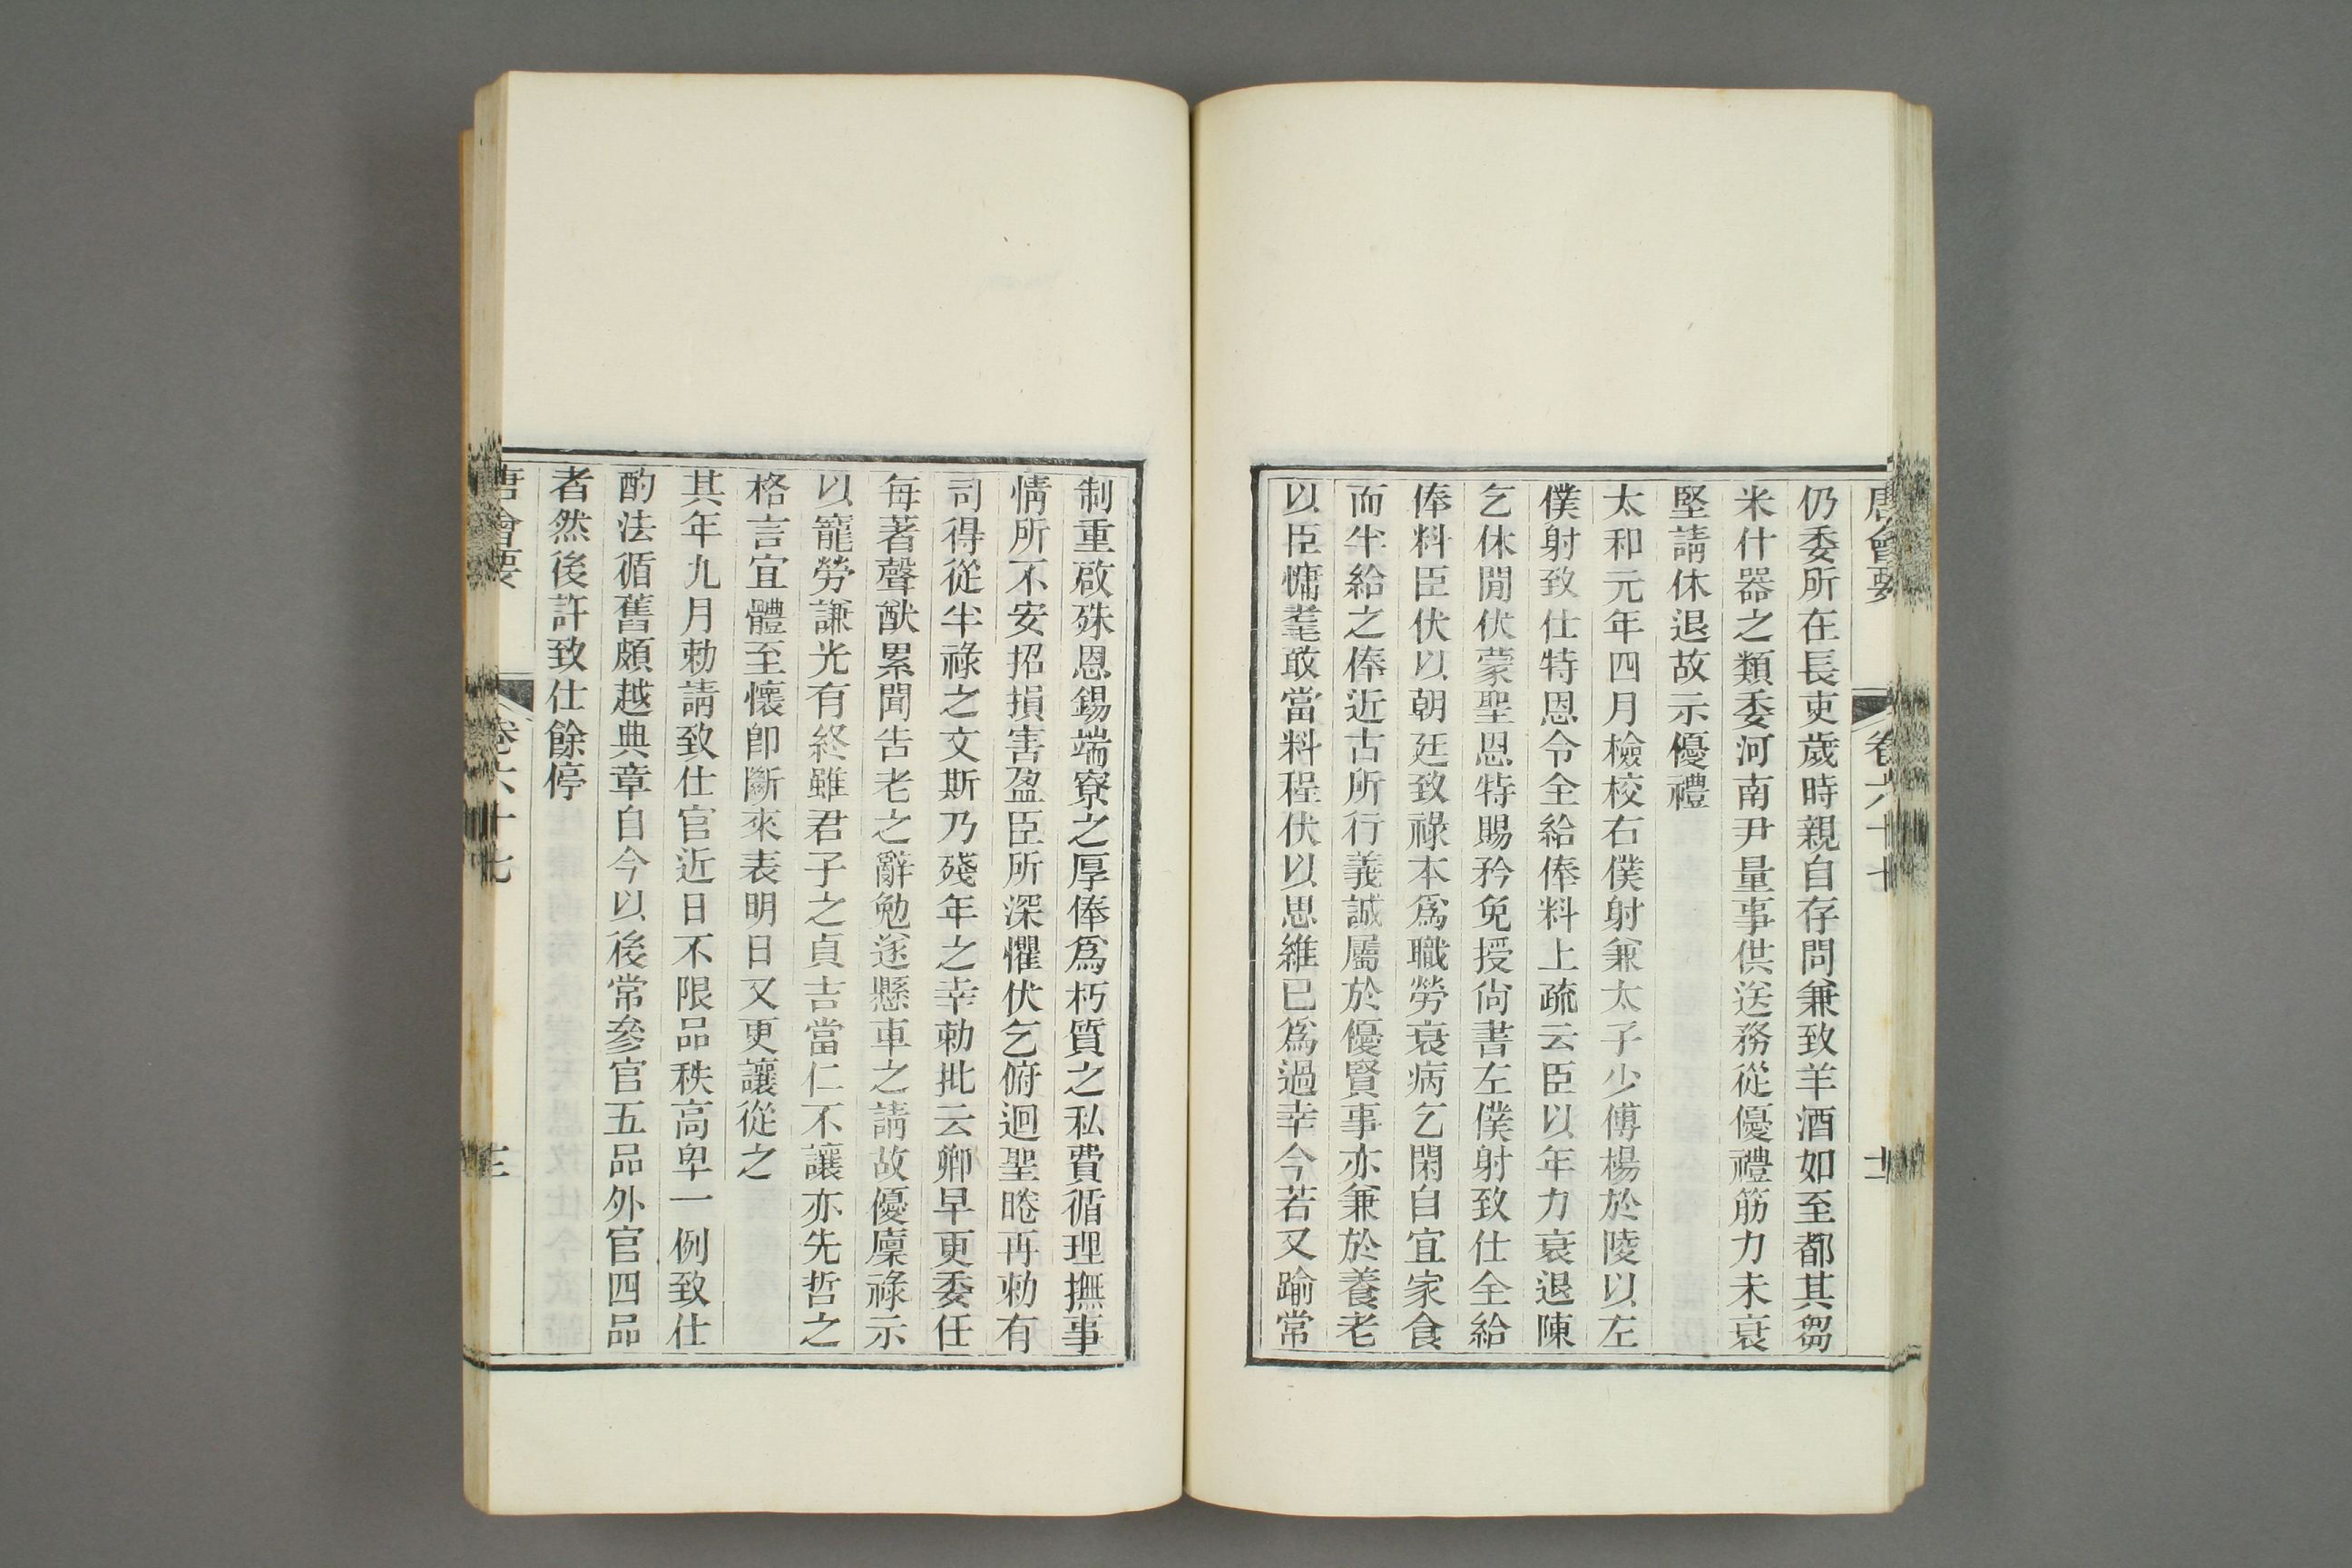 唐會要 卷六十七
仍委所在長吏歲時親自存問兼致羊酒如至都其芻
米什器之類委河南尹量事供送務從優禮筋力未衰
堅請休退故示優禮
太和元年四月檢校右僕射兼太子少傅楊於陵以左
僕射致仕特恩令全給俸料上疏云臣以年力衰退陳
乞休閒伏蒙聖恩特賜矜免授尙書左僕射致仕全給
俸料臣伏以朝廷致祿本爲職勞衰病乞閑自宜家食
而半給之俸近古所行義誠屬於優賢事亦兼於養老
以臣慵耄敢當料程伏以思維已爲過幸今若又踰常
制重啟殊恩錫端寮之厚俸爲朽質之私費循理撫事
情所不安招損害盈臣所深懼伏乞俯迴聖睠再勅有
司得從半祿之文斯乃殘年之幸勅批云卿早更委任
每著聲猷累聞告老之辭勉遂懸車之請故優廩祿示
以寵勞謙光有終雖君子之貞吉當仁不讓亦先哲之
格言宜體至懷卽斷來表明日又更讓從之
其年九月勅請致仕官近日不限品秩高卑一例致仕
酌法循舊頗越典章自今以後常參官五品外官四品
者然後許致仕餘停
唐會要 卷六十七